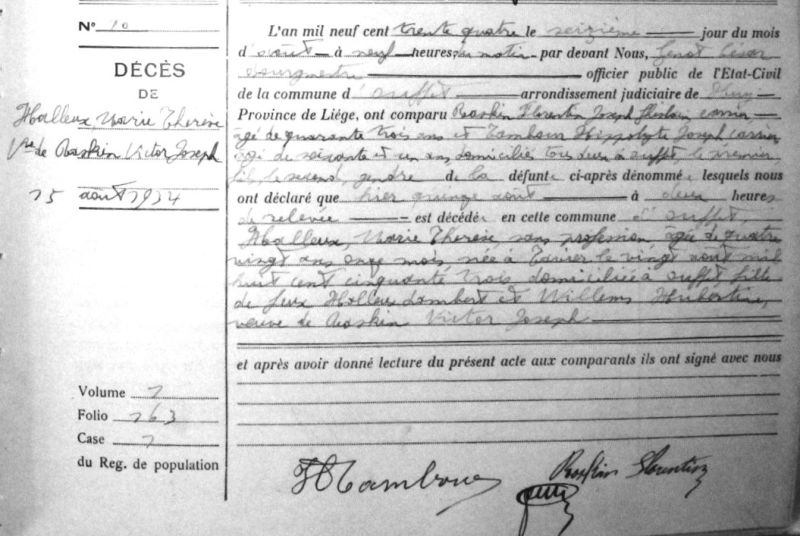 N° 10
DÉCÈS
DE
Halleux, Marie Thérèse
Vve de Raskin Victor Joseph
15 août 1934
Volume 7
Folio 263
Case 7
du Reg. de population
L'an mil neuf cent trente quatre le seizième jour du mois
d'août à neuf heures du matin par devant Nous,
bourgmestre officier public de l'Etat-Civil
de la commune d'Ouffet arrondissement judiciaire de Huy
Province de Liége, ont comparu Raskin Florentin Joseph Ghislain
âgé de quarante trois ans et Tambour Hippolyte Joseph
âgé de soixante et un ans domiciliés tous deux à Ouffet, le premier
fils, le second, gendre de la défunte ci-après dénommée lesquels nous
ont déclaré que hier quinze août à deux heures
de relevée est décédée en cette commune d'Ouffet,
Halleux, Marie Thérèse, sans profession âgée de quatre
vingt ans onze mois née à Tavier le vingt août mil
huit cent cinquante trois domiciliée à Ouffet fille
de feux Halleux Lambert et Willems Hubertine,
veuve de Raskin Victor Joseph
et après avoir donné lecture du présent acte aux comparants ils ont signé avec nous
HTambour
Raskin Florentin